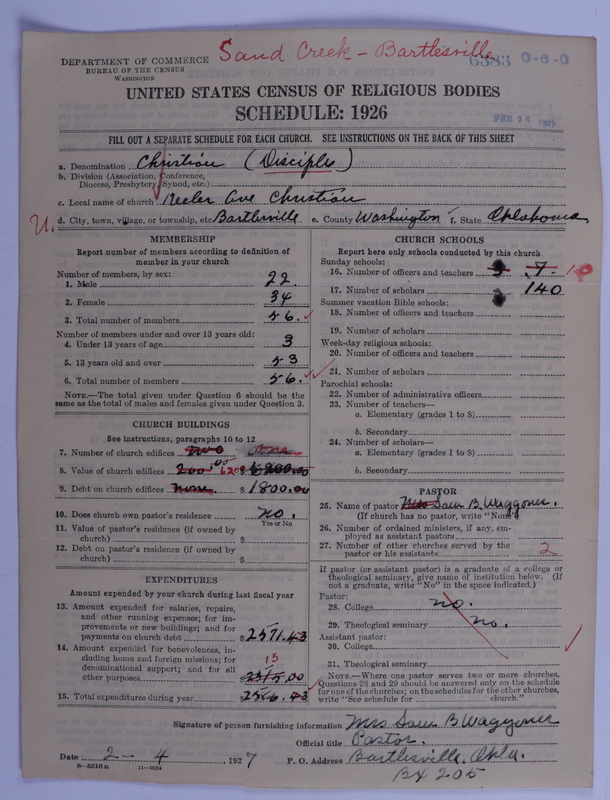 Sand Creek - Bartlesville
DEPARTMENT OF COMMERCE
BUREAU OF THE CENSUS
WASHINGTON
6383 0-6-0
UNITED STATES CENSUS OF RELIGIOUS BODIES
SCHEDULE: 1926
FEB 14 1927
FILL OUT A SEPARATE SCHEDULE FOR EACH CHURCH. SEE INSTRUCTIONS ON THE BACK OF THIS SHEET
a. Denomination Christian (Disciple)
b. Division (Association, Conference,
Diocese, Presbytery, Synod, etc.)
c. Local name of church Keeler Ave Christian
U. d. City, town, village, or township, etc. Bartlesville e. County Washington f. State Oklahoma
MEMBERSHIP
Report number of members according to definition of
member in your church
Number of members, by sex:
1. Male 22.
2. Female 34
3. Total number of members 56.
Number of members under and over 13 years old:
4. Under 13 years of age 3
5. 13 years old and over 53
6. Total number of members 56.
NOTE.—The total given under Question 6 should be the
same as the total of males and females given under Question 3.
CHURCH BUILDINGS
See instructions, paragraphs 10 to 12
7. Number of church edifices two one
8. Value of church edifices $ 6200.00
9. Debt on church edifices none $ 1800.00
10. Does church own pastor's residence? no.
Yes or No
11. Value of pastor's residence (if owned by
church) $
12. Debt on pastor's residence (if owned by
church) $
EXPENDITURES
Amount expended by your church during last fiscal year
13. Amount expended for salaries, repairs,
and other running expenses; for im-
provements or new buildings; and for
payments on church debt $ 2571.43
14. Amount expended for benevolences, in-
cluding home and foreign missions; for
denominational support; and for all
other purposes 15 .00
15. Total expenditures during year 2586.43
CHURCH SCHOOLS
Report here only schools conducted by this church
Sunday schools:
16. Number of officers and teachers 7. 10
17. Number of scholars 140
Summer vacation Bible schools:
18. Number of officers and teachers
19. Number of scholars
Week-day religious schools:
20. Number of officers and teachers
21. Number of scholars
Parochial schools:
22. Number of administrative officers
23. Number of teachers—
a. Elementary (grades 1 to 8)
b. Secondary
24. Number of scholars—
a. Elementary (grades 1 to 8)
b. Secondary
PASTOR
25. Name of pastor Mrs Sam B Waggoner.
(If church has no pastor, write "None")
26. Number of ordained ministers, if any, em-
ployed as assistant pastors
27. Number of other churches served by the
pastor or his assistants 2
If pastor (or assistant pastor) is a graduate of a college or
theological seminary, give name of institution below. (If
not a graduate, write "No" in the space indicated.)
Pastor:
28. College no.
29. Theological seminary no.
Assistant pastor:
30. College
31. Theological seminary
NOTE.—Where one pastor serves two or more churches,
Questions 28 and 29 should be answered only on the schedule
for one of the churches; on the schedules for the other churches,
write "See schedule for church."
Signature of person furnishing information Mrs Sam B Waggoner
Official title Pastor.
Date 2 - 4, 1927 P. O. Address Bartlesville, Okla.
8-5518a 11-9054
Bx 205